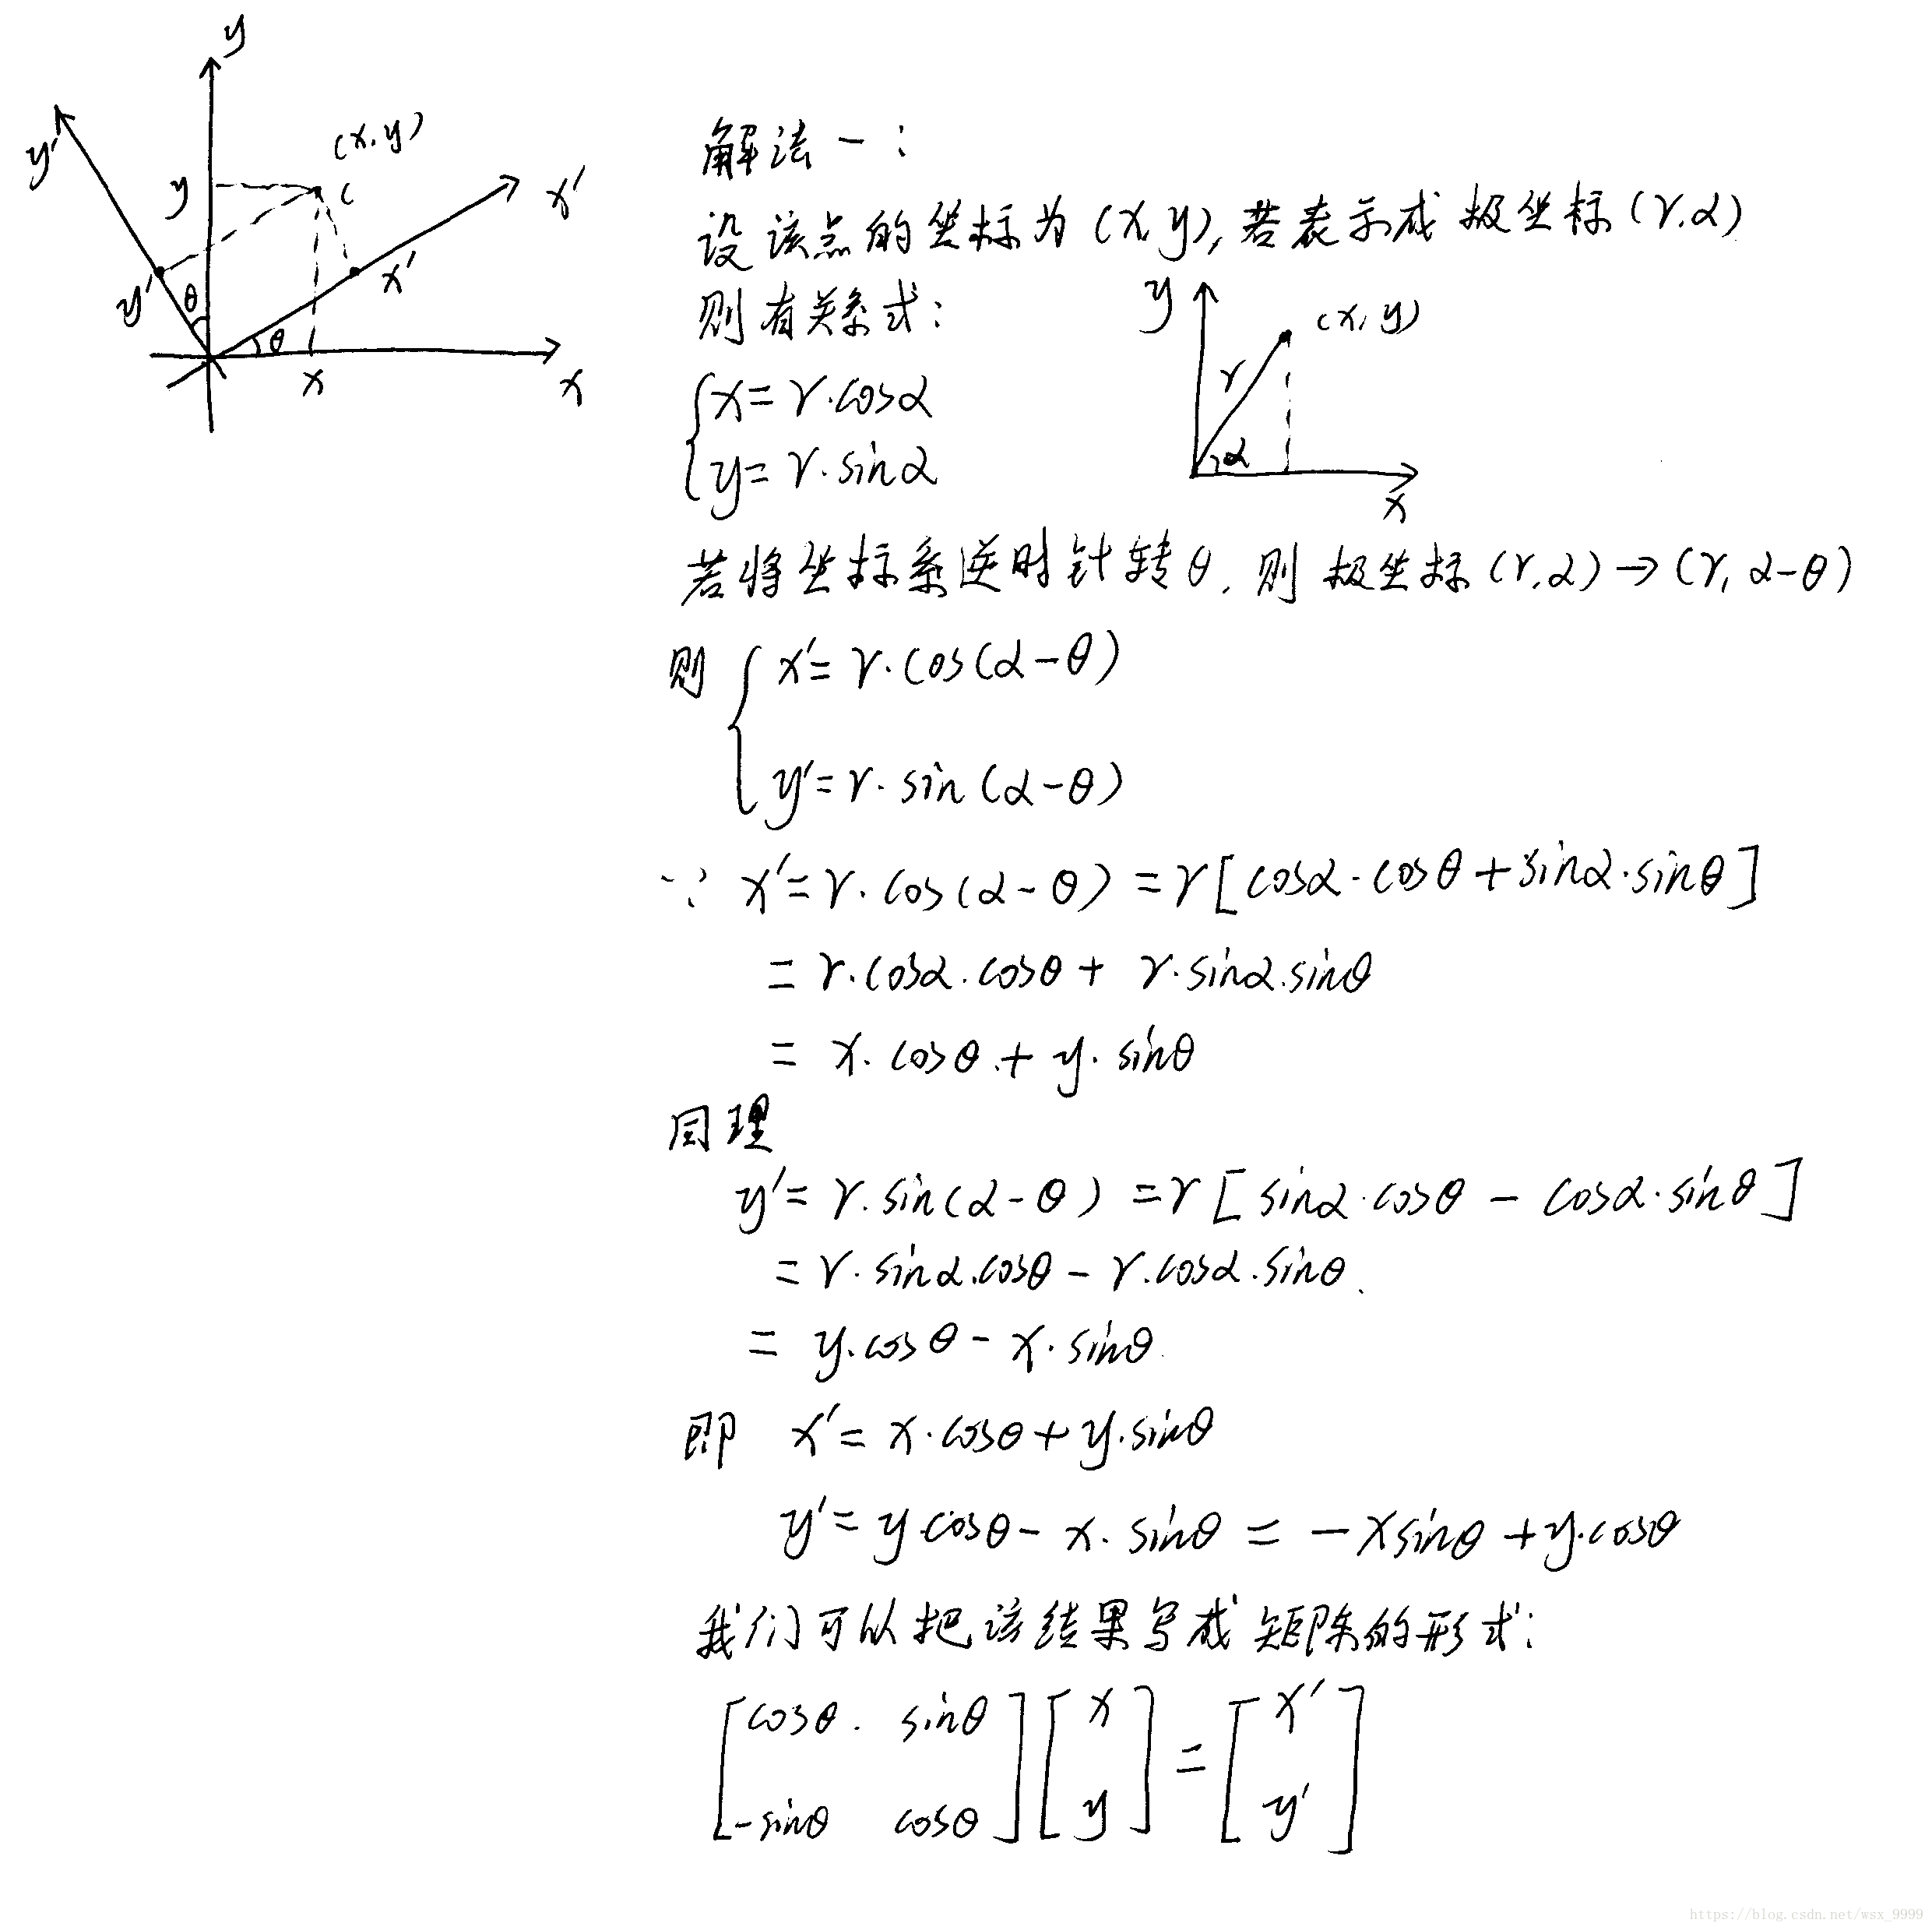 y
y'
(x, y)
y
c
x'
y'
θ
x'
θ
x
x
解法一:
设该点的坐标为(x, y), 若表示成极坐标(r, α)
则有关系式:
y
(x, y)
r
α
x
x = r·cosα
y = r·sinα
若将坐标系逆时针转θ, 则极坐标(r, α) → (r, α-θ)
则 x' = r·cos(α-θ)
y' = r·sin(α-θ)
∵ x' = r·cos(α-θ) = r[cosα·cosθ + sinα·sinθ]
= r·cosα·cosθ + r·sinα·sinθ
= x·cosθ + y·sinθ
同理
y' = r·sin(α-θ) = r[sinα·cosθ - cosα·sinθ]
= r·sinα·cosθ - r·cosα·sinθ.
= y·cosθ - x·sinθ
即 x' = x·cosθ + y·sinθ
y' = y·cosθ - x·sinθ = -xsinθ + y·cosθ
我们可以把该结果写成矩阵的形式:
[cosθ sinθ] [x] = [x']
[-sinθ cosθ] [y] [y']
https://blog.csdn.net/wsx_9999